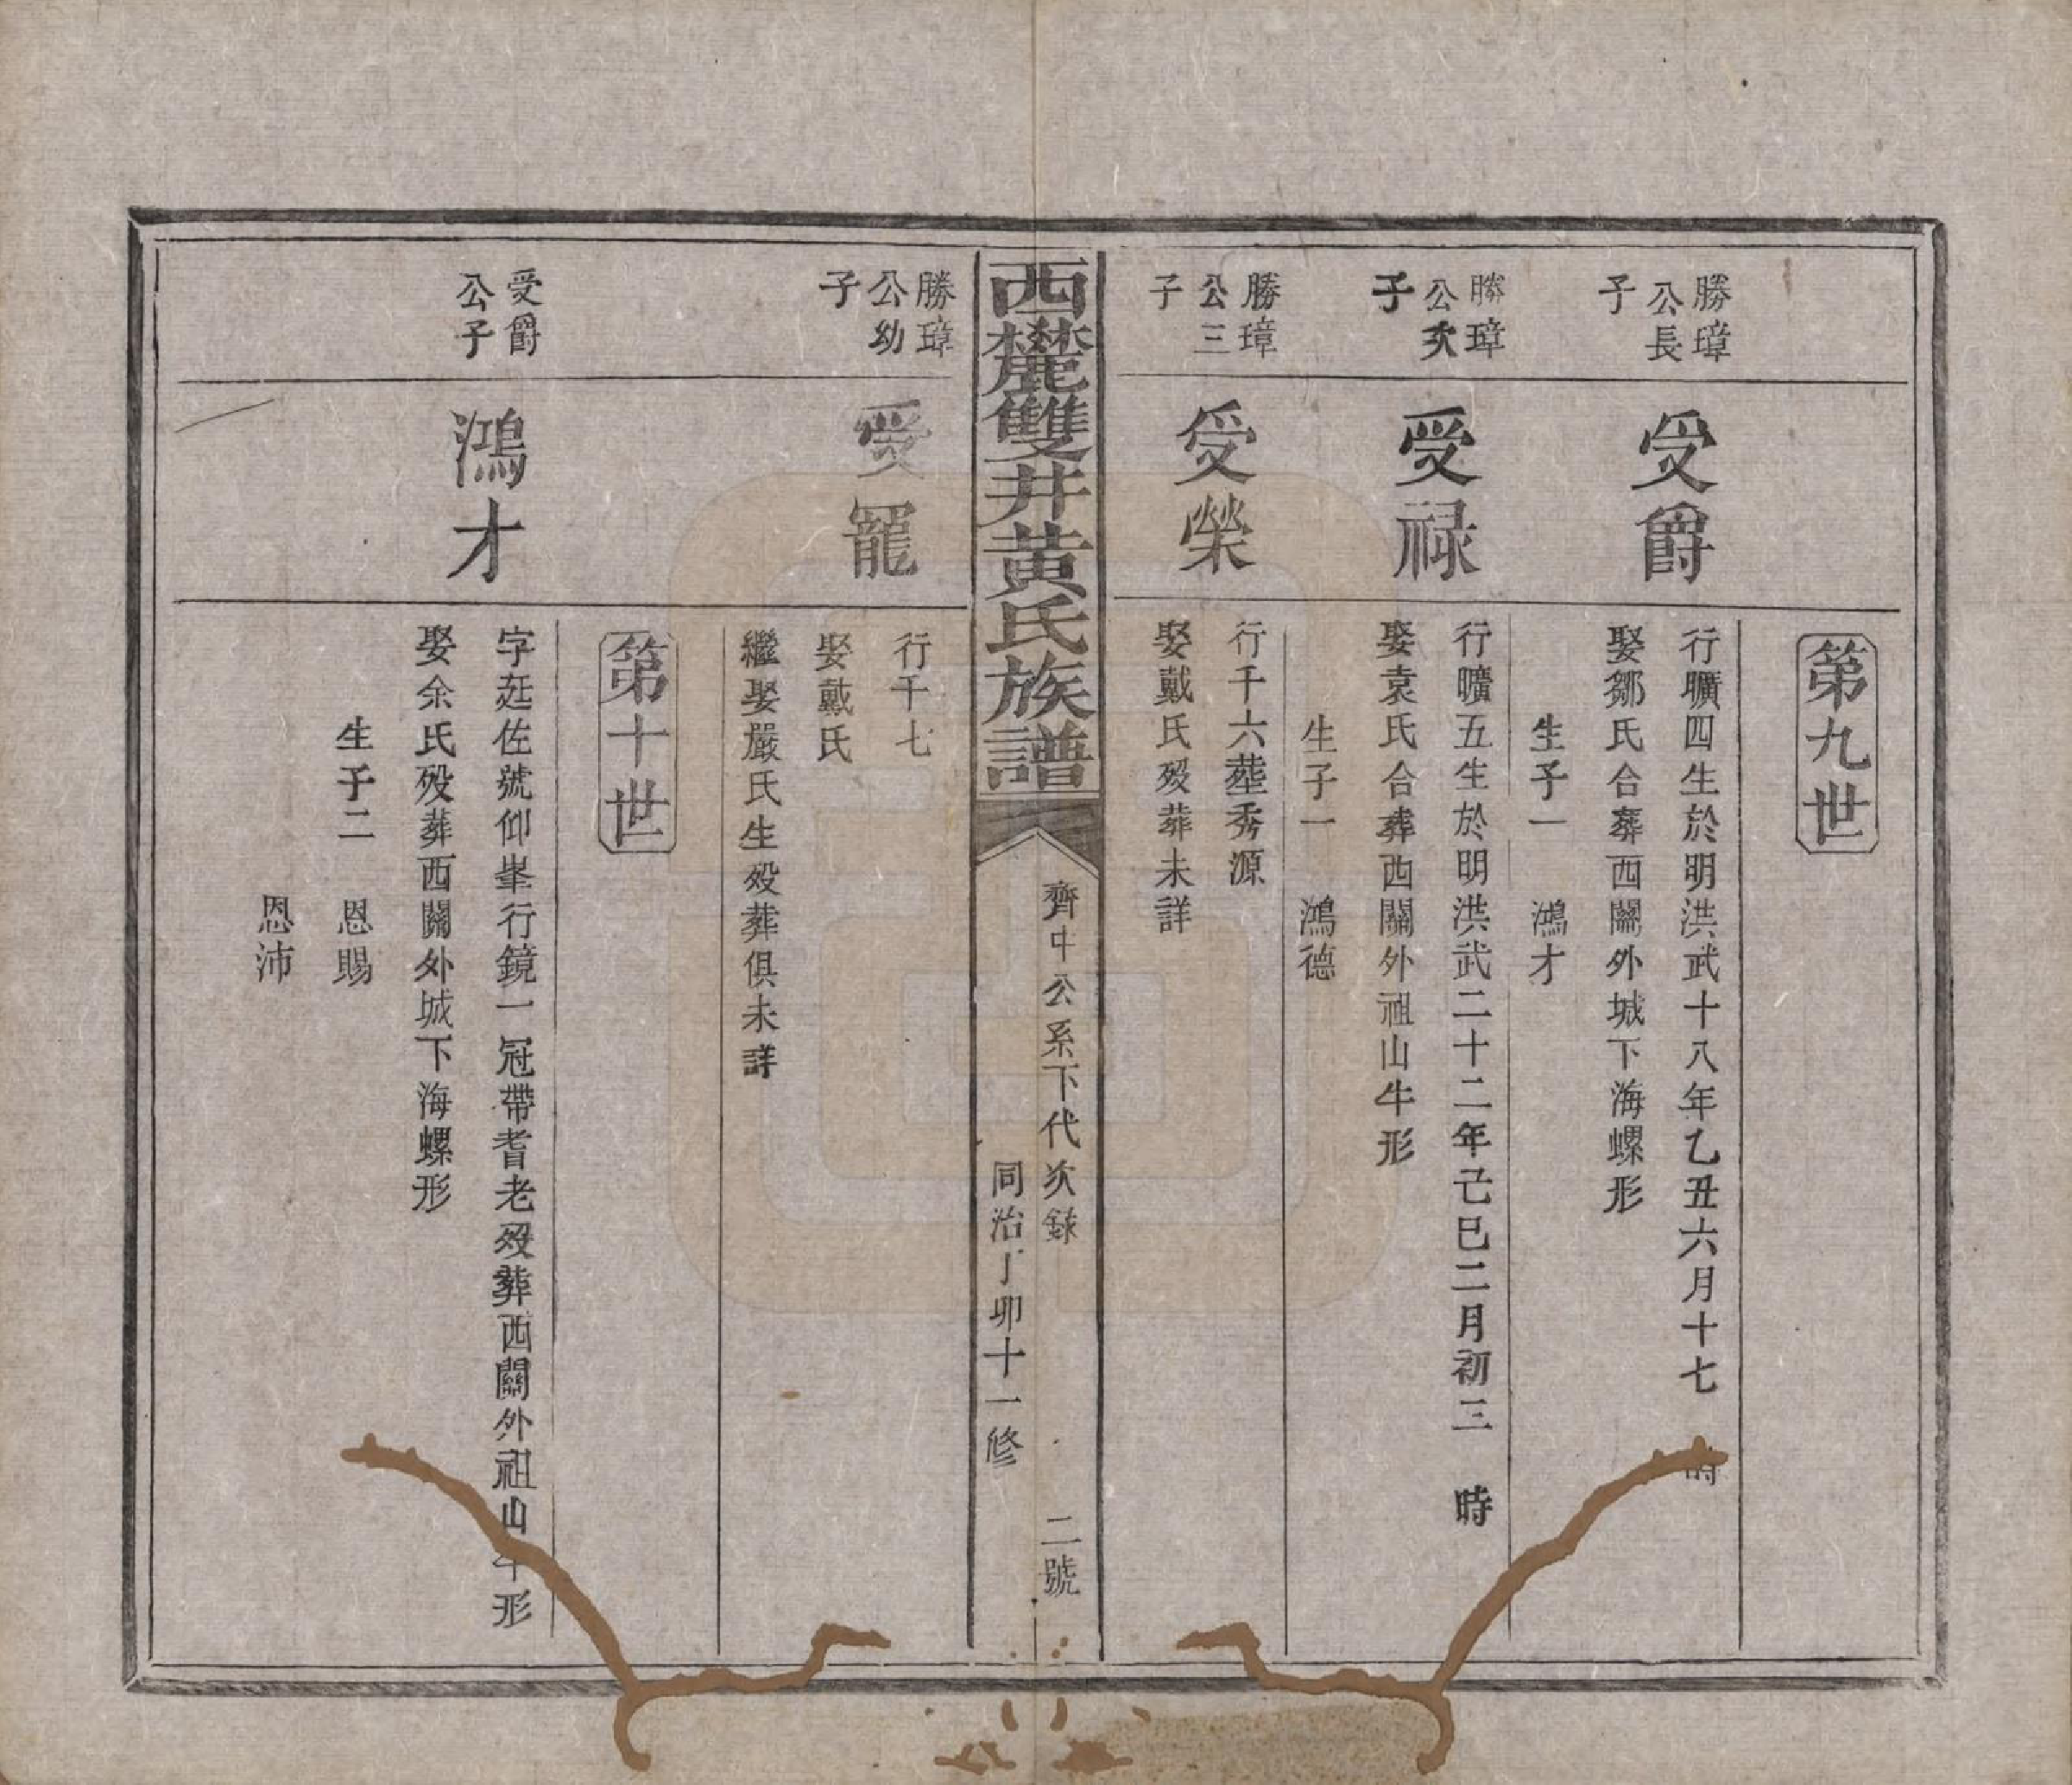 第九世
勝璋
公長
子
受爵
行曠四生於明洪武十八年乙丑六月十七 時
娶鄒氏合葬西關外城下海螺形
生子一 鴻才
勝璋
公次
子
受禄
行曠五生於明洪武二十二年己巳二月初三 時
娶袁氏合葬西關外祖山牛形
生子一 鴻德
勝璋
公三
子
受榮
行千六葬秀源
娶戴氏歿葬未詳
西麓雙井黃氏族譜
齊中公系下代次錄 二號
同治丁卯十一修
勝璋
公幼
子
受寵
行千七
娶戴氏
繼娶嚴氏生歿葬俱未詳
第十世
受爵
公子
鴻才
字廷佐號仰峯行鏡一冠帶耆老歿葬西關外祖山牛形
娶余氏歿葬西關外城下海螺形
生子二 恩賜
恩沛